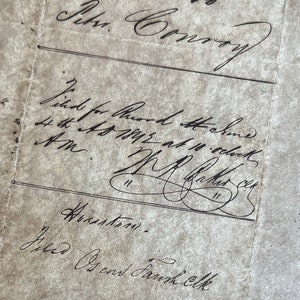 to
Peter Conroy
Filed for Record at June
4th AD 1842 at 10 oclock
A.M.
W R Baker
Houston
Filed Clk